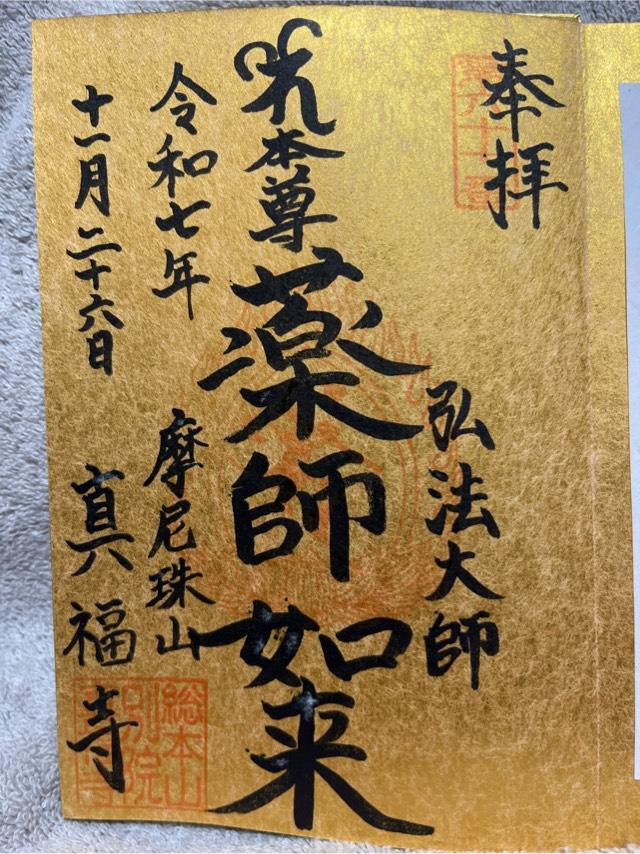 奉拝
弘法大師
本尊
薬師如来
令和七年
摩尼珠山
十一月二十六日
真福寺
総本山
別院